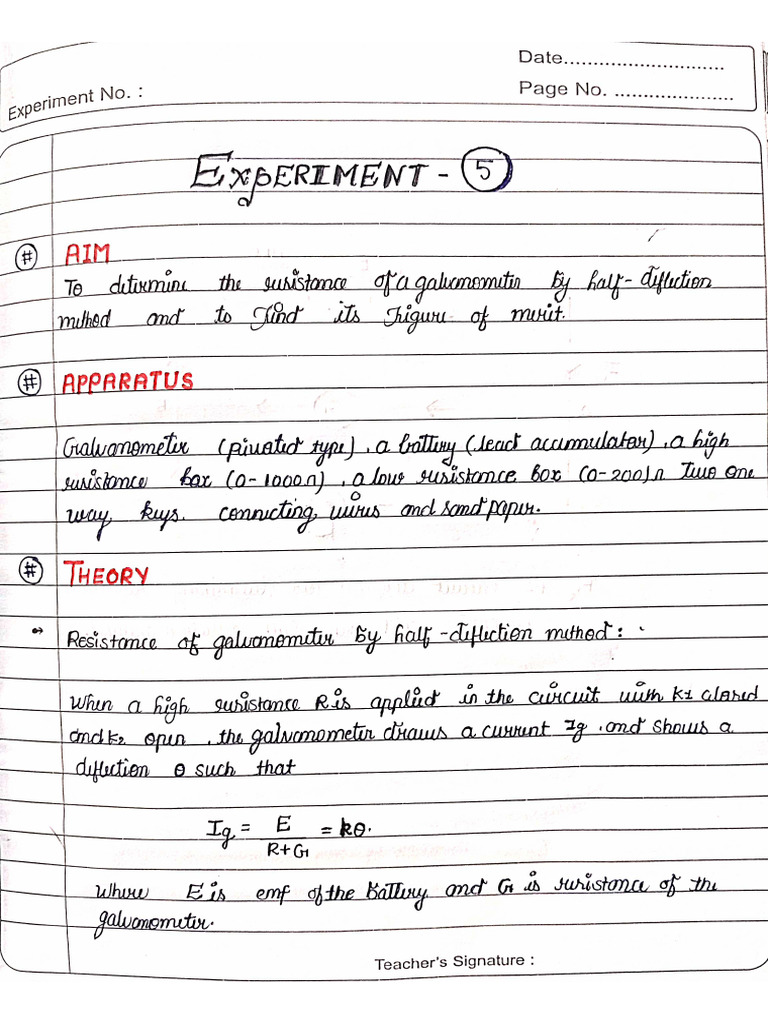 Date..........................
Experiment No. :
Page No. ......................
EXPERIMENT - 5
# AIM
To determine the resistance of a galvanometer by half-deflection
method and to find its figure of merit.
# APPARATUS
Galvanometer (pivoted type), a battery (lead accumulator), a high
resistance box (0-1000Ω), a low resistance box (0-200)Ω Two one
way keys. connecting wires and sand paper.
# THEORY
Resistance of galvanometer by half-deflection method:
When a high resistance R is applied in the circuit with K1 closed
and K2 open, the galvanometer draws a current Ig, and shows a
deflection θ such that
Ig = E / R+G = kθ.
Where E is emf of the Battery and G is resistance of the
galvanometer.
Teacher's Signature :